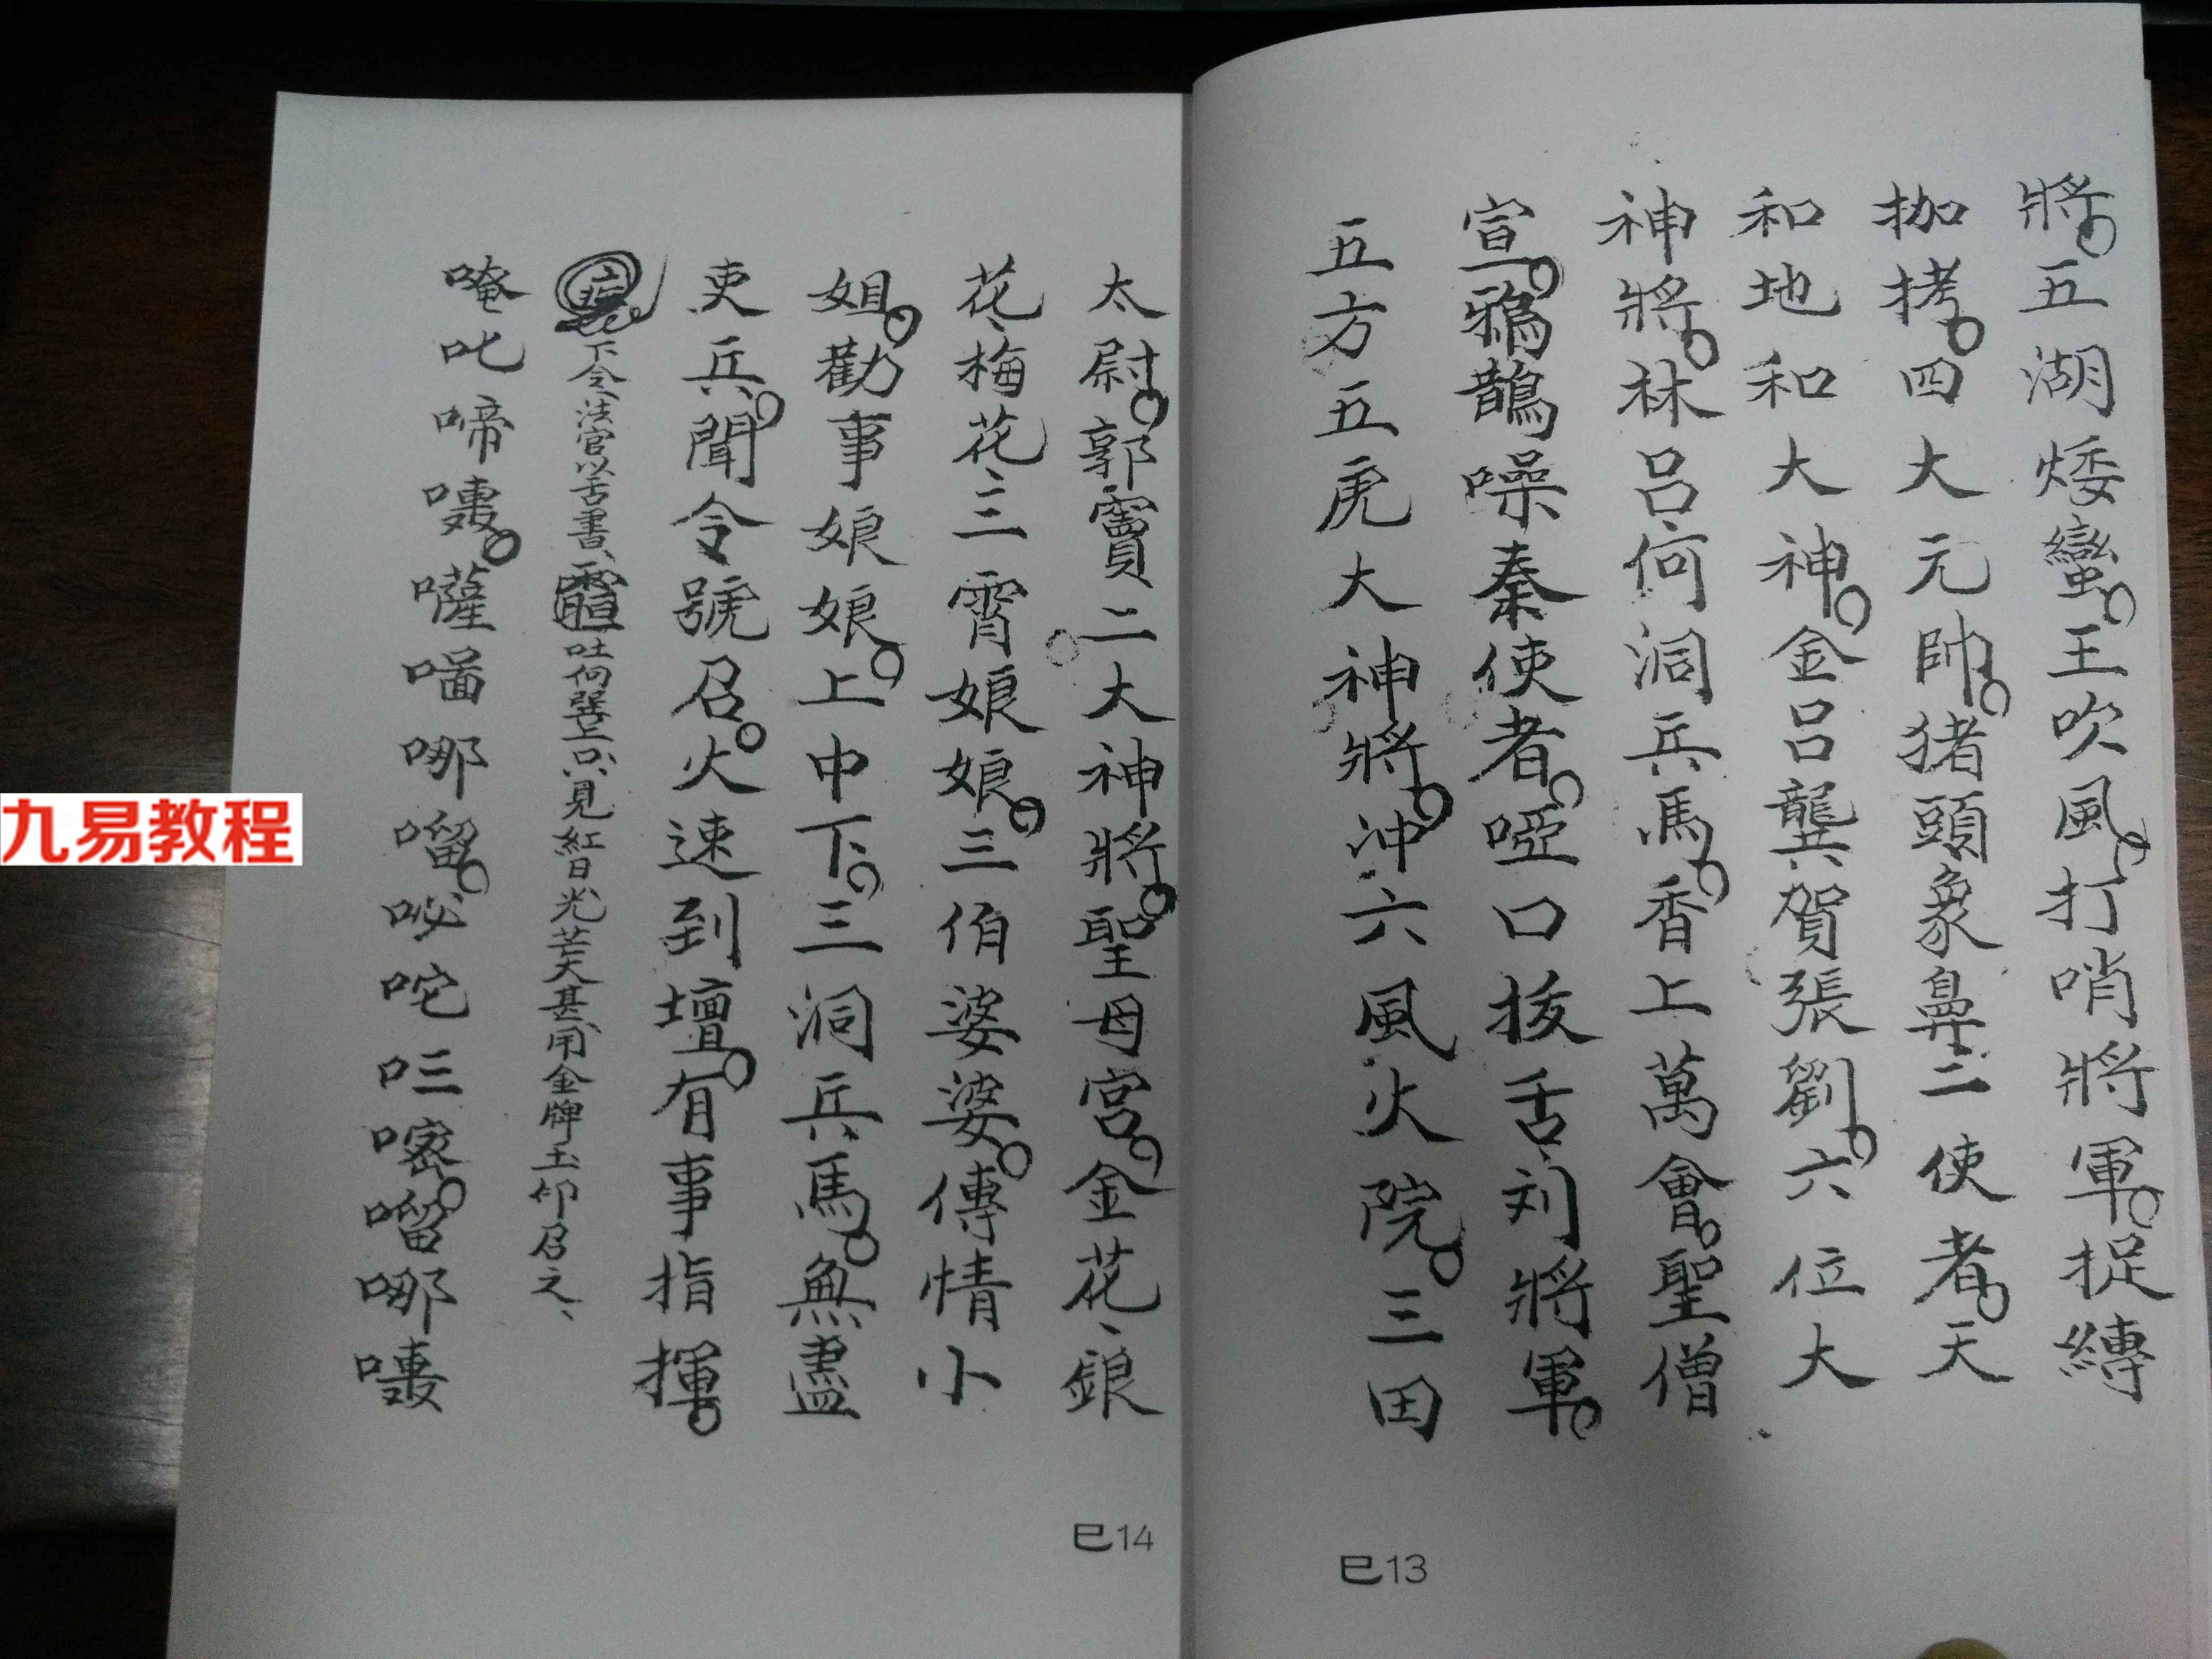 將。五湖矮蠻。王吹風。打哨將軍。捉縛
拁拷。四大元帥。猪頭象鼻二使者。天
和地和大神。金呂龔賀張劉。六位大
神將。林呂何洞兵馬。香上萬會。聖僧
宣。鴉鵲噪秦使者。啞口拔舌刘將軍。
五方五虎大神將。冲六風火院。三田
巳13
太尉。郭竇二大神將。聖母宮。金花、銀
花、梅花、三霄娘娘。三伯婆婆。傳情小
姐。勸事娘娘。上中下。三洞兵馬。無盡
吏兵。聞令號召。火速到壇。有事指揮。
下令法官以舌書、吐向巽上只見紅日光芒大甚、用金牌玉印召之、
唵叱啼嘍。囉㗀哪嚠。咇咜吅嘧。嚠哪嘍
巳14
九易教程